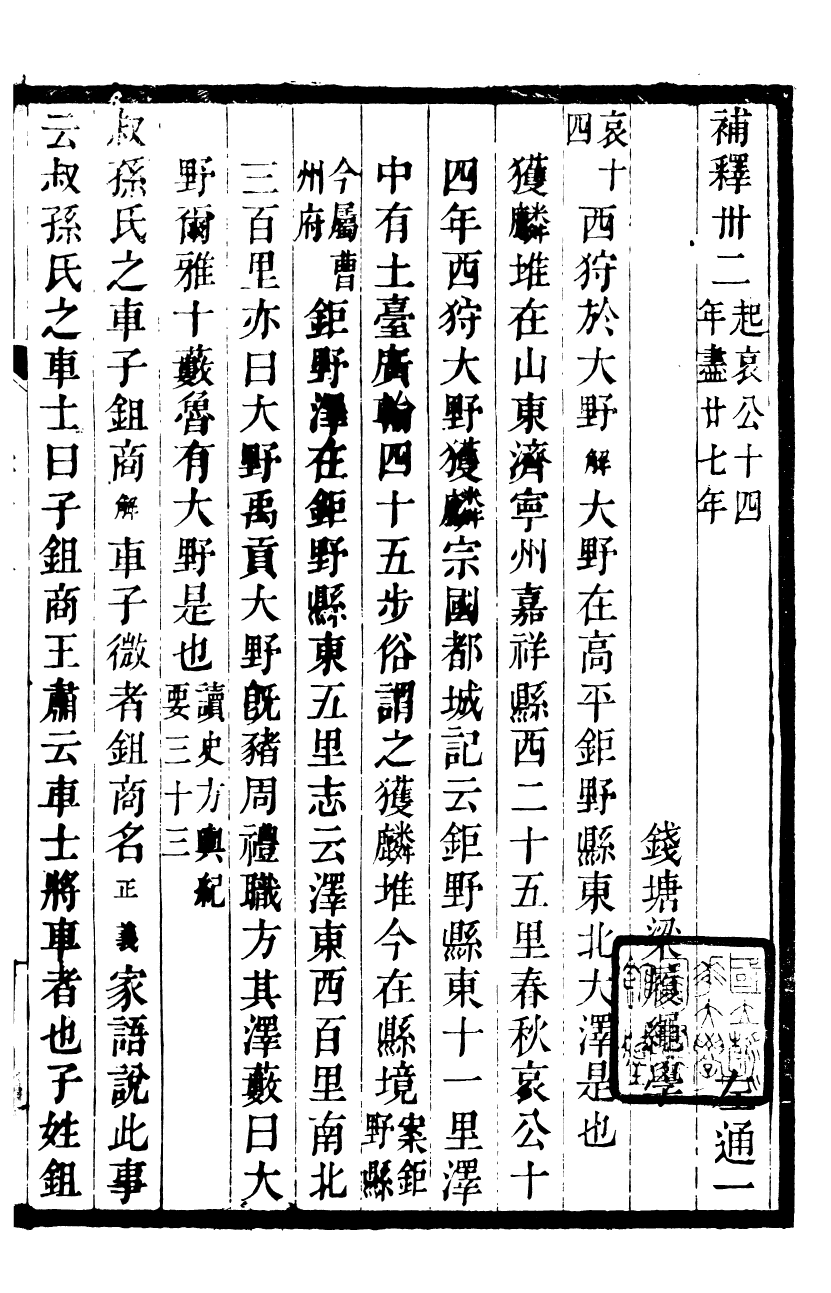 補釋卅二起哀公十四年盡廿七年 左通一
錢塘梁履繩學
哀十四西狩於大野解大野在高平鉅野縣東北大澤是也
獲麟堆在山東濟寧州嘉祥縣西二十五里春秋哀公十
四年西狩大野獲麟宗國都城記云鉅野縣東十一里澤
中有土臺廣輪四十五步俗謂之獲麟堆今在縣境案鉅野縣
今屬曹州府鉅野澤在鉅野縣東五里志云澤東西百里南北
三百里亦曰大野禹貢大野旣豬周禮職方其澤藪曰大
野爾雅十藪魯有大野是也讀史方輿紀要三十三
叔孫氏之車子鉏商解車子微者鉏商名正義家語說此事
云叔孫氏之車士曰子鉏商王肅云車士將車者也子姓鉏